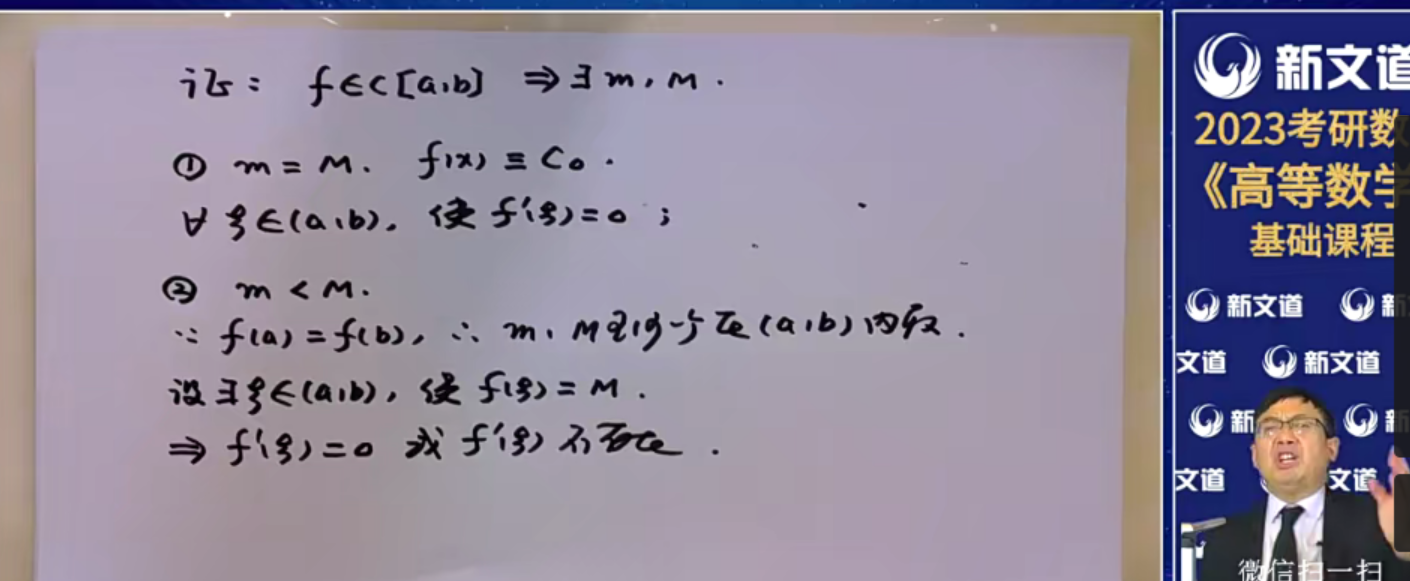 证: f∈C[a,b] ⇒∃ m, M.
① m = M. f(x) ≡ C₀.
∀ ξ∈(a,b), 使 f'(ξ)=0 ;
② m < M.
∵ f(a) = f(b), ∴ m, M 至少一个在(a,b)内取.
设∃ξ∈(a,b), 使 f(ξ) = M.
⇒ f'(ξ)=0 或 f'(ξ) 不存在.
新文道
2023考研数
《高等数学
基础课程
新文道 新
文道 新文道
新 新
文道 文道
微信扫一扫